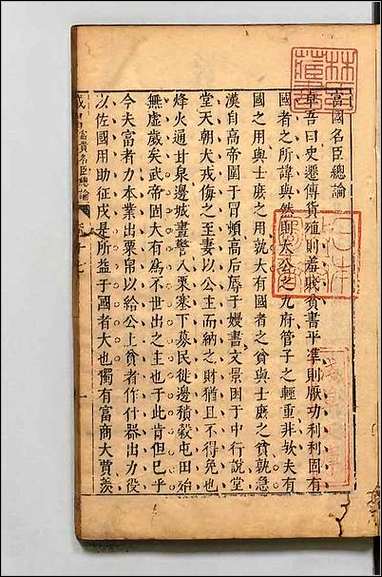 富國名臣總論
卓吾曰史遷傳貨殖則羞賤貧書平準則厭功利利固有
國者之所諱與然則太公之九府管子之輕重非歟夫有
國之用與士庶之用孰大有國之貧與士庶之貧孰急
漢自高帝圍于冒頓高后辱于嫚書文景困于中行說堂
堂天朝犬戎侮之至妻以公主而納之財猶且不得免也
烽火通甘泉邊城晝警入粟塞下募民徙邊積穀屯田始
無虛歲矣武帝固大有為不世出之主也于此肯但已乎
今夫富者力本業出粟帛以給公上貧者作什器出力役
以佐國用助征戍是所益于國者大也獨有富商大賈羨